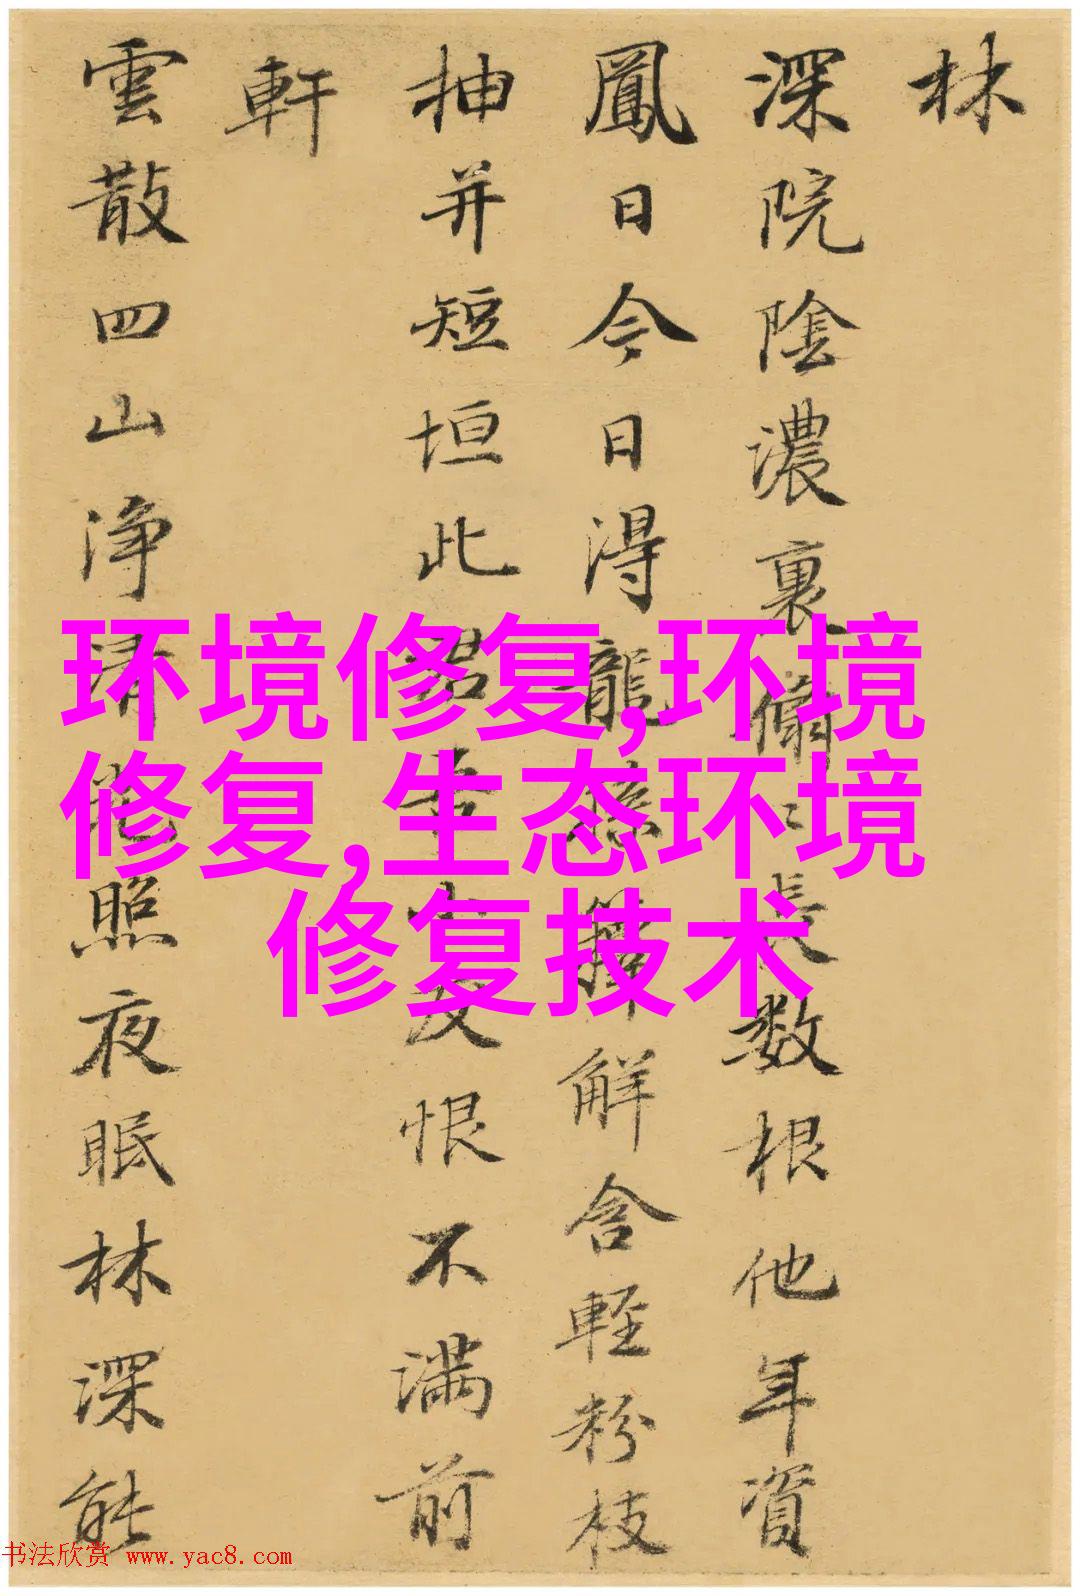 林
深院陰濃裏脩〻長数根他年資
鳳日今日得龍孫籜解含輕粉枝
抽并短垣此君吾友恨不满前
軒
雲散四山净清照夜眠林深能
环境修复,环境
修复,生态环境
修复技术
书法欣赏 www.yac8.com